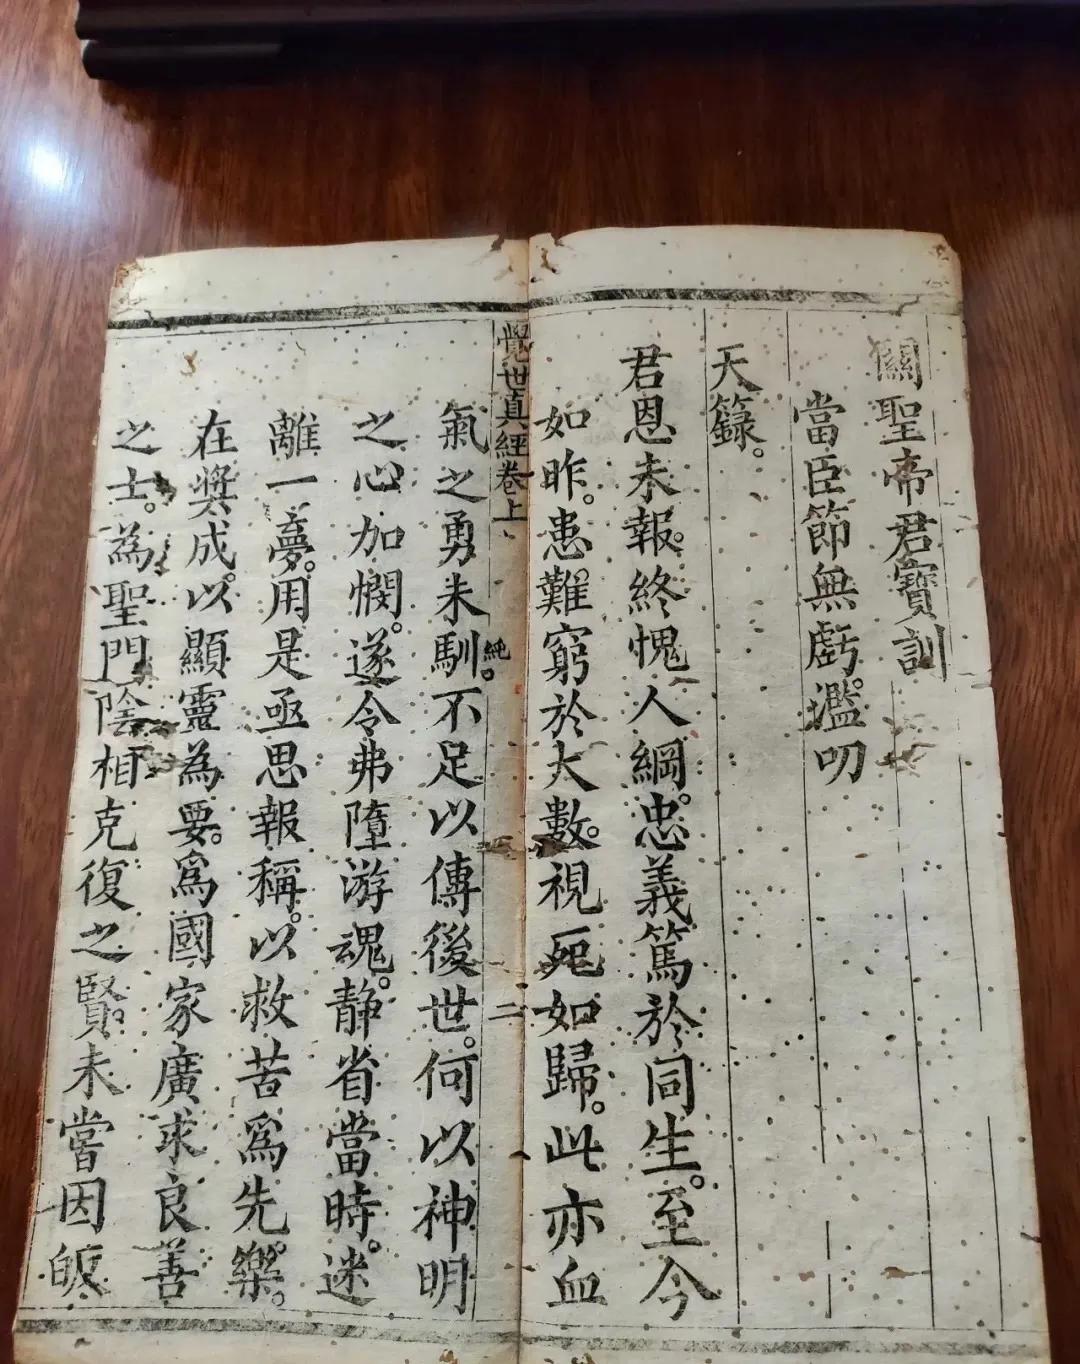 關聖帝君寶訓
當臣節無虧。濫叨
天籙。
君恩未報。終愧人綱。忠義篤於同生。至今
如昨。患難窮於大數。視死如歸。此亦血
覺世真經卷上 二
氣之勇未馴。純。不足以傳後世。何以神明
之心加憫。遂令弗墮游魂。靜省當時。迷
離一夢。用是亟思報稱。以救苦為先。樂。
在奬成。以顯靈為要。為國家廣求良善
之士。為聖門陰相克復之賢。未嘗因皈